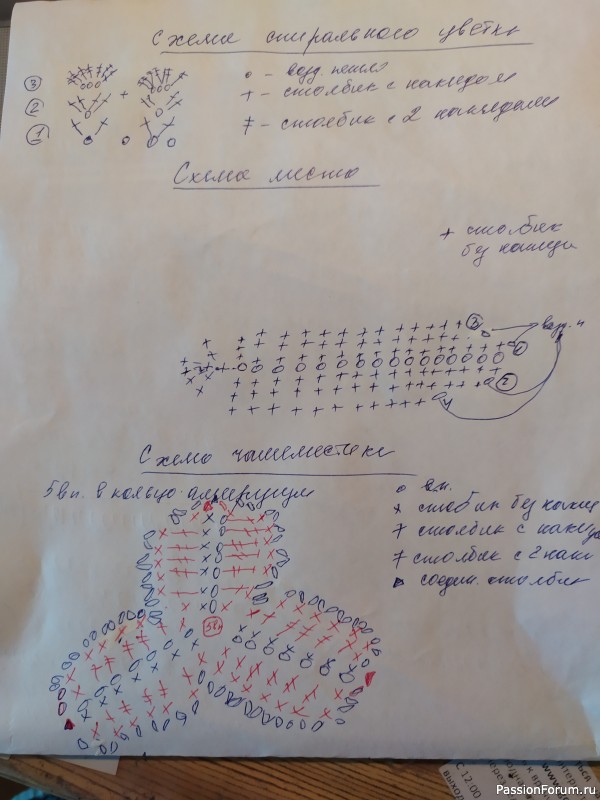 Схема спирального цветка
③ о - возд. петля
+ - столбик с накидом
② ‡ - столбик с 2 накидами
①
Схема листа
+ столбик
без накида
③ возд. п
①
②
Схема чашелистика
5 вп. в кольцо амигуруми
о вп.
х столбик без накид
столбик с наки
столбик с 2 наки
соедин. столбик
5вп
С 12:00
PassionForum.ru